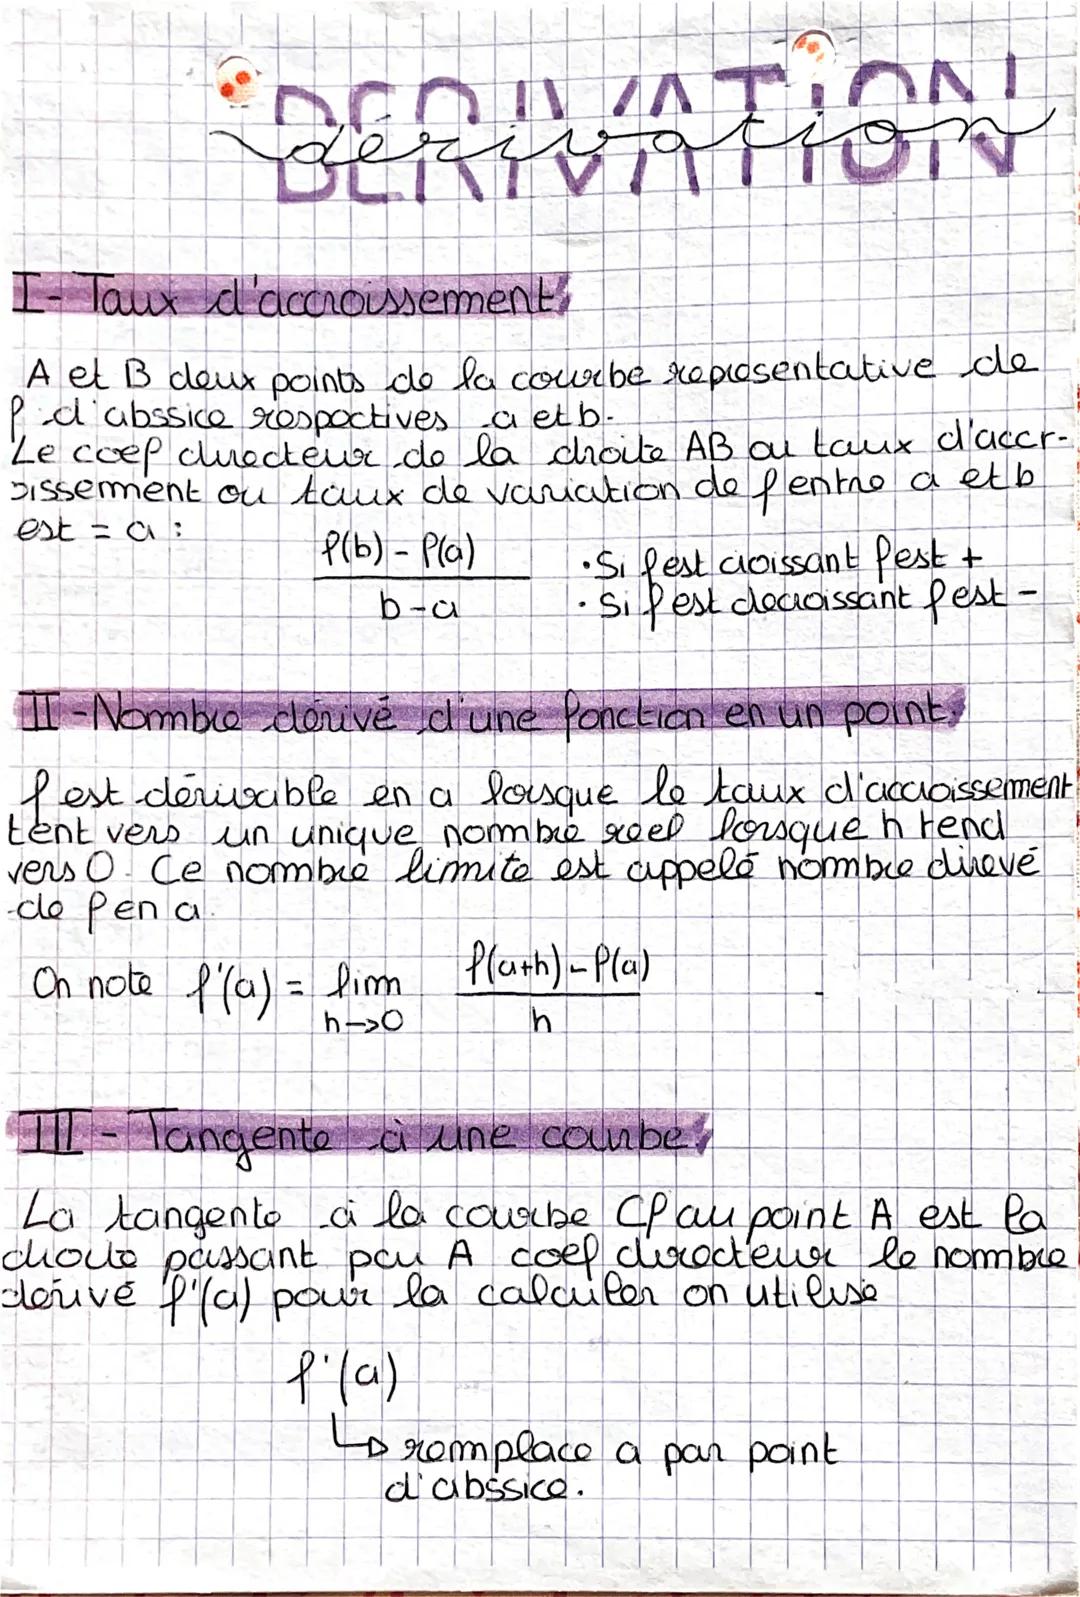 DERIVATION
dérivation
I- Taux d'accroissement
A et B deux points de la courbe representative de
f d'abssice respectives a et b.
Le coef directeur de la droite AB ou taux d'accr-
oissement ou taux de variation de f entre a et b
est = a :
f(b) - f(a)
b-a
• Si f est croissant f est +
• Si f est decroissant f est -
II - Nommbre dérivé d'une fonction en un point.
f est dérivable en a lorsque le taux d'accroissement
tent vers un unique nommbre reel lorsque h tend
vers 0. Ce nommbre limite est appelé nommbre direvé
de f en a.
On note f'(a) = lim f(a+h) - f(a)
h→0 h
III - Tangente à une courbe
La tangente à la courbe Cf au point A est la
droite passant par A coef directeur le nommbre
dérivé f'(a) pour la calculer on utilise
f'(a)
↳ remplace a par point
d'abssice.